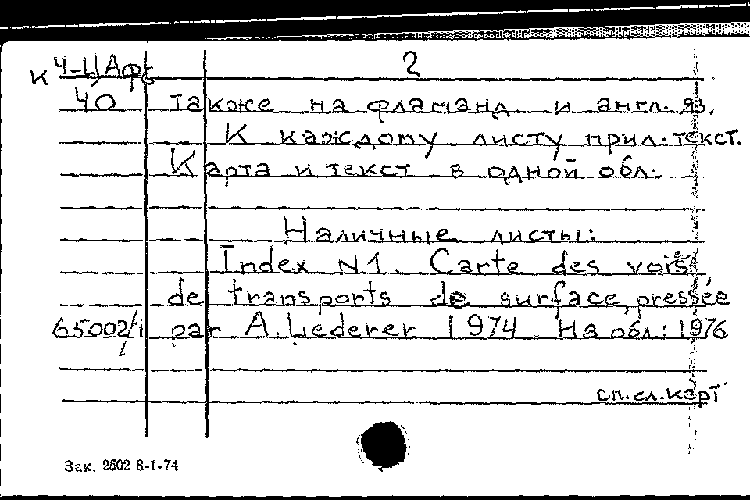 К 4-Ц Афр 2
40 также на фламанд. и англ. яз.
К каждому листу прил. текст.
Карта и текст в одной обл.
Наличные листы:
Index N1. Carte des vois
de transports de surface, pressée
65002/1 par A. Lederer 1974 На обл: 1976
сп.сл.карт
Зак. 2602 8-1-74